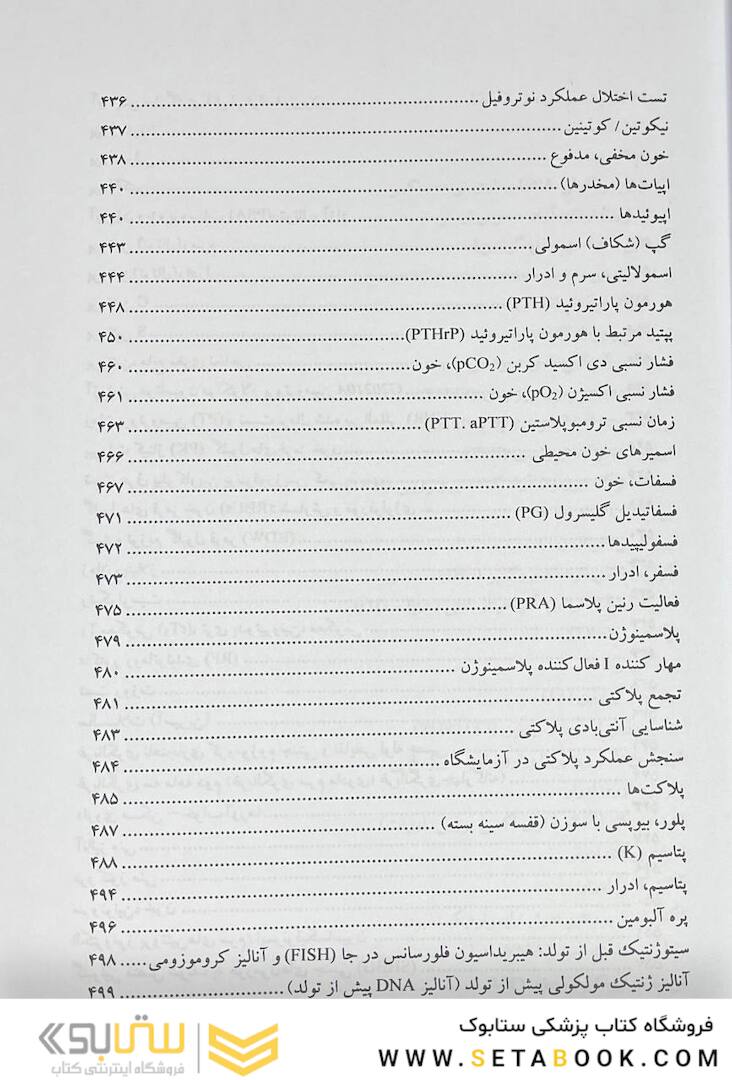 تست اختلال عملکرد نوتروفیل ........ ۴۳۶
نیکوتین/ کوتینین ........ ۴۳۷
خون مخفی، مدفوع ........ ۴۳۸
اپیات‌ها (مخدرها) ........ ۴۴۰
اپیوئیدها ........ ۴۴۰
گپ (شکاف) اسمولی ........ ۴۴۳
اسمولالیتی، سرم و ادرار ........ ۴۴۴
هورمون پاراتیروئید (PTH) ........ ۴۴۸
پپتید مرتبط با هورمون پاراتیروئید (PTHrP) ........ ۴۵۰
فشار نسبی دی اکسید کربن (pCO₂)، خون ........ ۴۶۰
فشار نسبی اکسیژن (pO₂)، خون ........ ۴۶۱
زمان نسبی ترومبوپلاستین (PTT. aPTT) ........ ۴۶۳
اسمیرهای خون محیطی ........ ۴۶۶
فسفات، خون ........ ۴۶۷
فسفاتیدیل گلیسرول (PG) ........ ۴۷۱
فسفولیپیدها ........ ۴۷۲
فسفر، ادرار ........ ۴۷۳
فعالیت رنین پلاسما (PRA) ........ ۴۷۵
پلاسمینوژن ........ ۴۷۹
مهار کننده I فعال‌کننده پلاسمینوژن ........ ۴۸۰
تجمع پلاکتی ........ ۴۸۱
شناسایی آنتی‌بادی پلاکتی ........ ۴۸۳
سنجش عملکرد پلاکتی در آزمایشگاه ........ ۴۸۴
پلاکت‌ها ........ ۴۸۵
پلور، بیوپسی با سوزن (قفسه سینه بسته) ........ ۴۸۷
پتاسیم (K) ........ ۴۸۸
پتاسیم، ادرار ........ ۴۹۴
پره آلبومین ........ ۴۹۶
سیتوژنتیک قبل از تولد: هیبریداسیون فلورسانس در جا (FISH) و آنالیز کروموزومی ..... ۴۹۸
آنالیز ژنتیک مولکولی پیش از تولد (آنالیز DNA پیش از تولد) ........ ۴۹۹
فروشگاه کتاب پزشکی ستابوک
WWW.SETABOOK.COM
ستابوک
فروشگاه اینترنتی کتاب